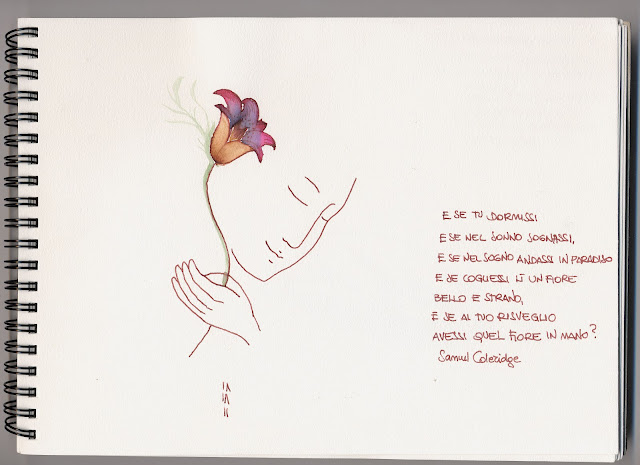 E SE TU DORMISSI
E SE NEL SONNO SOGNASSI,
E SE NEL SOGNO ANDASSI IN PARADISO
E SE COGLIESSI LÌ UN FIORE
BELLO E STRANO,
E SE AL TUO RISVEGLIO
AVESSI QUEL FIORE IN MANO?
Samuel Coleridge